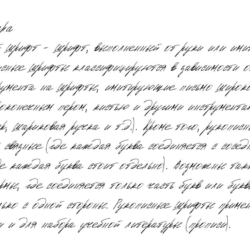 ка
шрифт - шрифт, выполненный от руки или ими
сные шрифты классифицируются в зависимости о
румента на шрифты, имитирующие письмо широк
оконечным пером, кистью и другими инструмента
, шариковая ручка и т.д). Кроме того, рукописн
связные (где каждая буква соединяется с сосед
е каждая буква стоит отдельно). Возможны так
рные, где соединяется только часть букв или букв
лько с одной стороны. Рукописные шрифты приме
и и для набора учебной литературы (прописи).